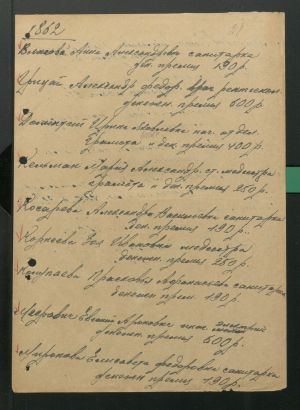 1862
Власова Анна Александровна санитарка
ден. премия 190 р.
Александр Федор. врач рентгенол.
денежн. премия 600 р.
Ирина Яковлевна нач. отдел.
Грамота и ден. премия 400 р.
Кельман Мария Александр. ст. медсестра
грамота и ден. премия 250 р.
Косарева Александра Васильевна санитарка
Ден. премия 190 р.
Корнеева Зоя Ивановна медсестра
денежн. премия 250 р.
Прасковья Афанасьевна санитарка
денежн. прем. 190 р.
Евгения Ароновна
денежн. премия 600 р.
Миронова Елизавета Федоровна санитарка
денежн премия 190 р.